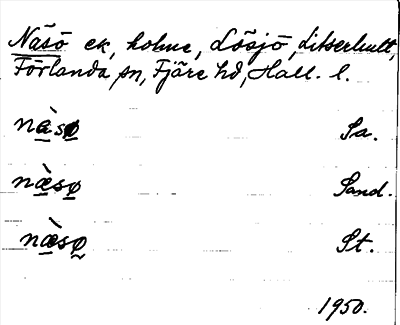 Näsö ek, holme, Lösjö, Litserhult,
Förlanda sn, Fjäre hd, Hall. l.
næ̀sø Sa.
næ̀sø Sand.
næ̀sø St.
1950.